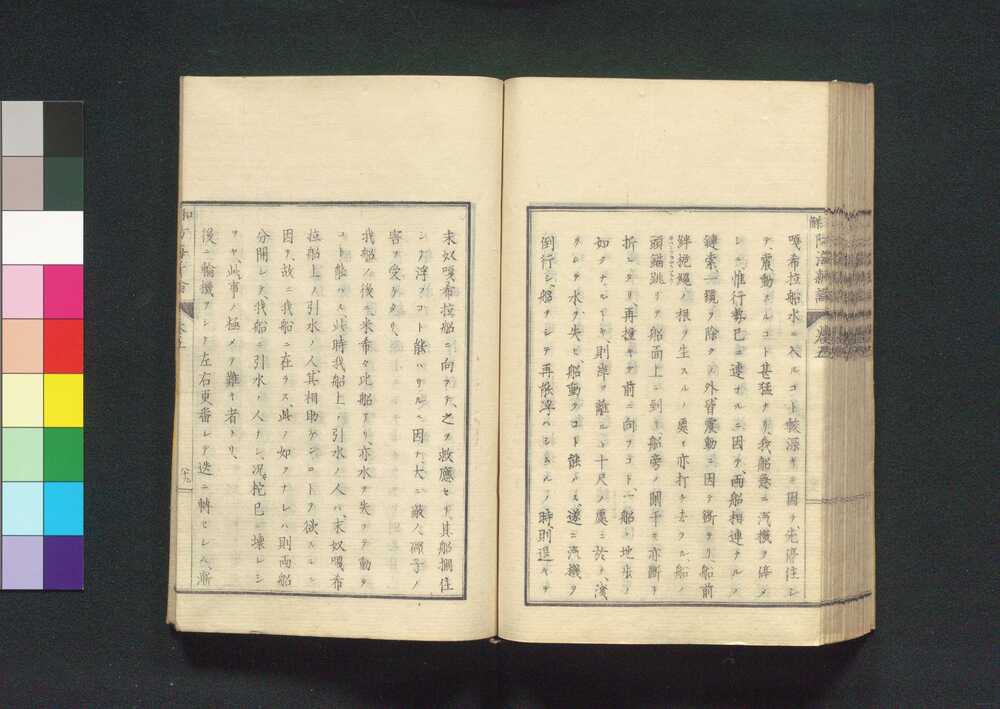 嘎希拉船水ニ入ルコト較深キニ因テ、先停住シ
テ、震動スルコト甚猛ナリ、我船急ニ汽機ヲ停メ
シニ、惟行勢已ニ速ナルニ因テ、両船相連ナルノ
鏈索、一纜ヲ除クノ外、皆震動ニ因テ断タリ、船前
絆桅縄ノ根ヲ生スルノ處モ亦打チ去ラル、船ノ
頭錨跳リテ船面上ニ到リ、船旁ノ闌干モ亦断チ
折レタリ、再撞キテ前ニ向フコト、一船ノ地歩
如クナルトキ、則岸ヲ離ルヽ十尺ノ處ニ於テ、浅
クシテ水ヲ失ヒ、船動クコト能ハス、遂ニ汽機ヲ
倒行シ、船ヲシテ再能浮ハシムルノ時、則退キテ
末奴嘎希拉船ニ向テ、之ヲ救應セリ、其船擱住
シテ浮フコト能ハサルニ因テ、大ニ敵人礮子ノ
害ヲ受ケタリ、
我船ノ後ニ来希々此船アリ、亦水ヲ失フテ動ク
コト能ハス、此時我船上ノ引水ノ人ハ、末奴嘎希
拉船上ノ引水ノ人其相助ケンコトヲ欲スルニ
因テ、故ニ我船ニ在ラス、此ノ如クナレハ則両船
分開シテ、我船ニ引水ノ人ナシ、况柁已ニ壊レシ
ヲヤ、此事ノ極メテ難キ者ナリ、
後ニ輪機ヲシテ左右更番シテ迭ニ轉セシメ、漸